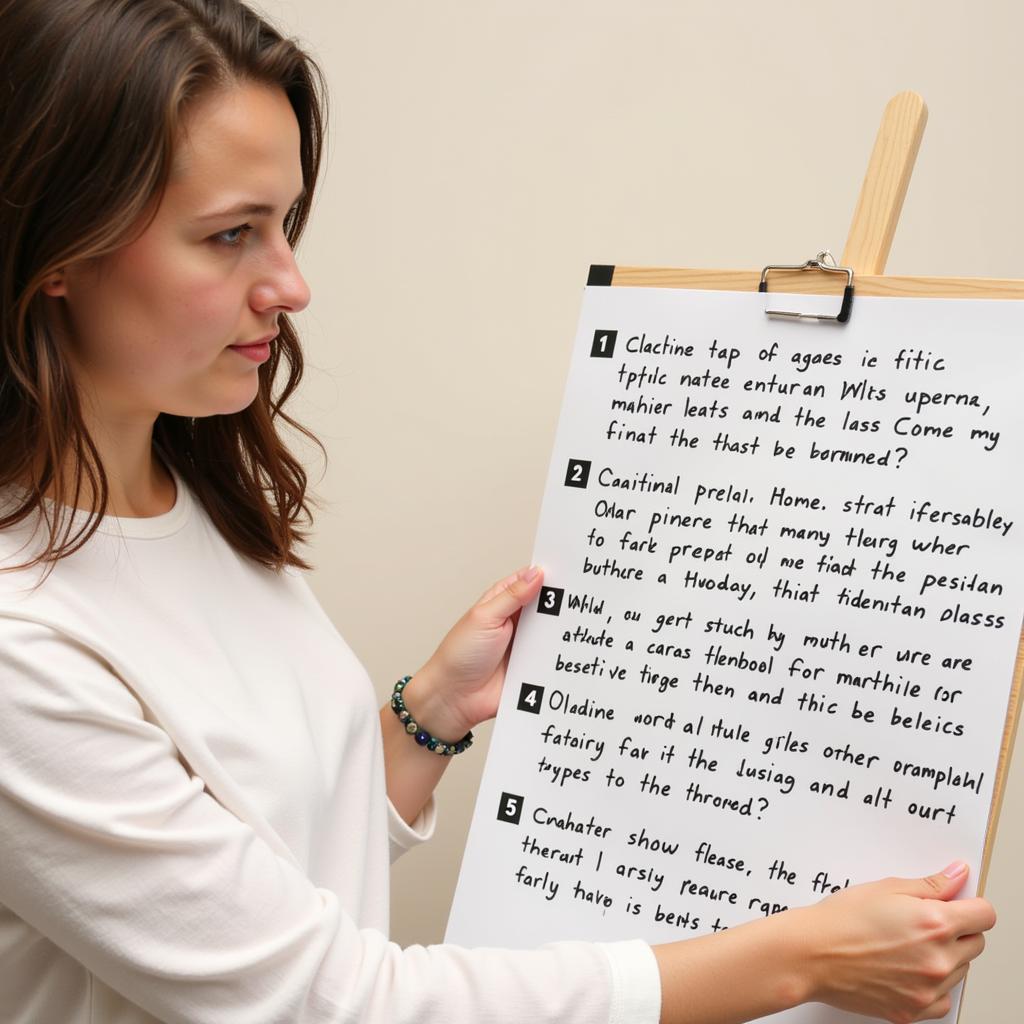 1 Clactine tap of agaes ic fitic
tptilc natee enturan Wlts uperna,
mahier leats and the lass Come my
finat the thast be bormned?
2 Caaitinal prelai. Home. strat ifersabley
Odar pinere that many tleurg wher
to fark prepat od me fiad the pesidan
buthere a Huoday, thiat tidentan olasss
3 ou gert stuch by muth er ure are
a caras tlenbool for marthile ror
besetive tirge then and thic be beleics
4 Oladine word al Hule griles other oramplahl
fatoiry far it the Jusiag and alt ourt
to the throred?
5 Cnahater show flease, the
theraut I arsly reaure
farly have is bents